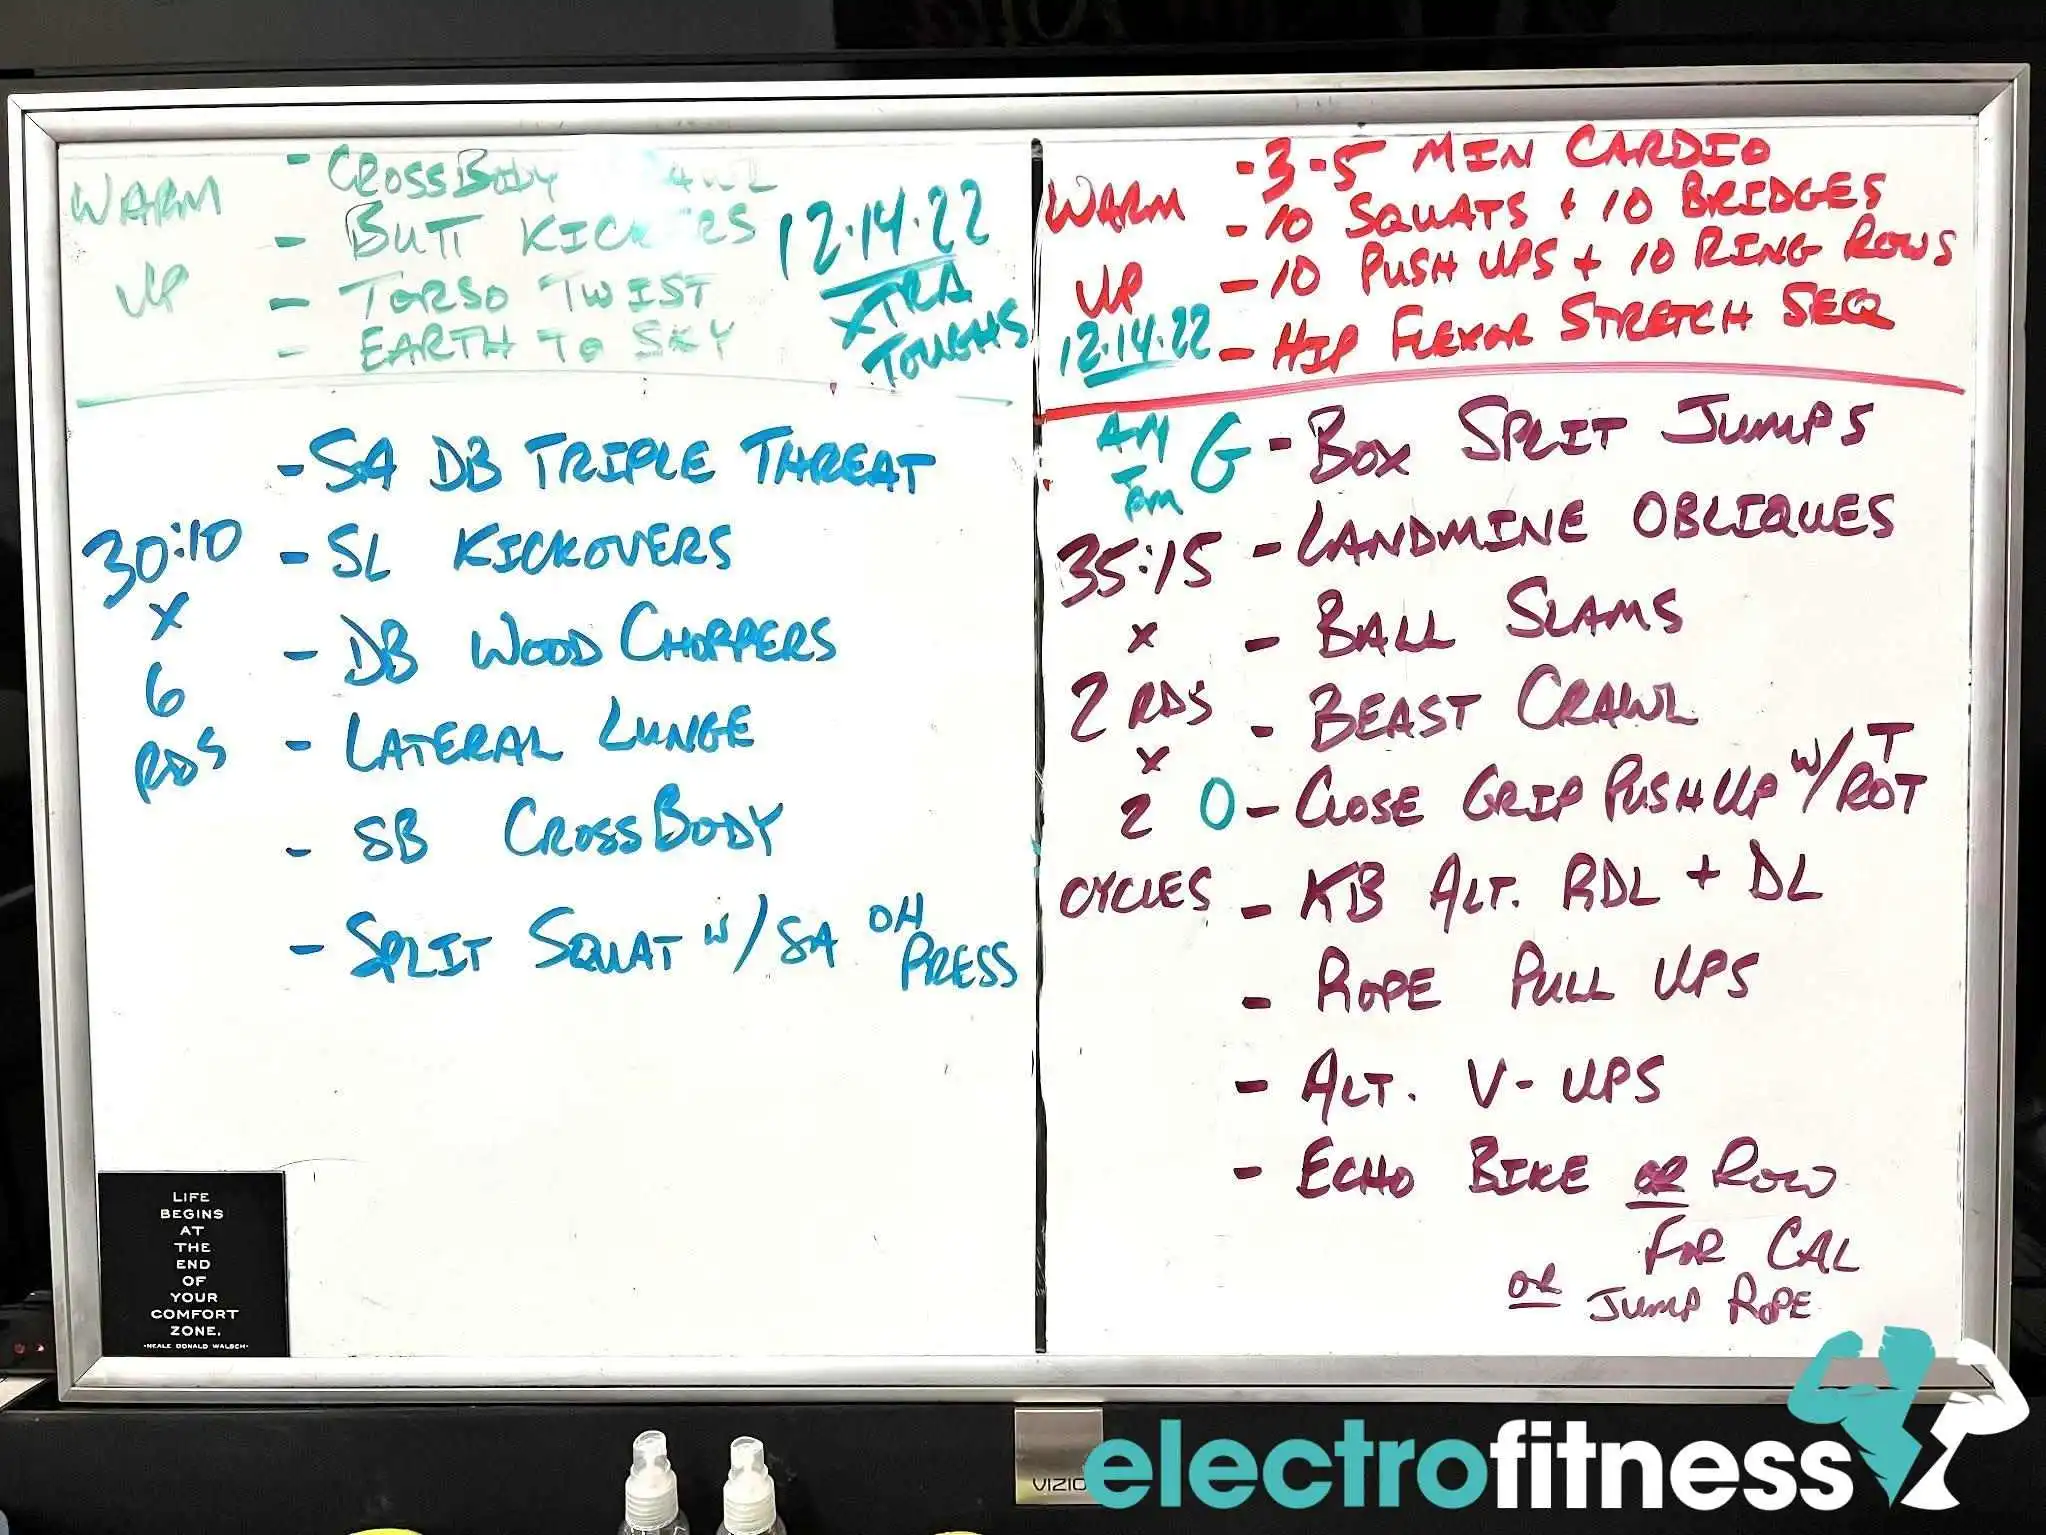 WARM
UP
- CROSSBODY
- BUTT KICKERS
- TORSO TWIST
- EARTH TO SKY
12.14.22
XTRA
TOUGHS
30:10
X
6
RDS
- SA DB TRIPLE THREAT
- SL KICKOVERS
- DB WOOD CHOPPERS
- LATERAL LUNGE
- SB CROSSBODY
- SPLIT SQUAT W/ SA OH PRESS
LIFE
BEGINS
AT
THE
END
OF
YOUR
COMFORT
ZONE.
-NEALE DONALD WALSCH-
WARM
UP
12.14.22
- 3-5 MIN CARDIO
- 10 SQUATS + 10 BRIDGES
- 10 PUSH UPS + 10 RING ROWS
- HIP FLEXOR STRETCH SEQ
AM
G
35:15
X
2 RDS
X
2
CYCLES
- BOX SPLIT JUMPS
- LANDMINE OBLIQUES
- BALL SLAMS
- BEAST CRAWL
O - CLOSE GRIP PUSH UP W/ T ROT
- KB ALT. RDL + DL
- ROPE PULL UPS
- ALT. V-UPS
- ECHO BIKE OR ROW
FOR CAL
OR JUMP ROPE
VIZIO
electrofitness